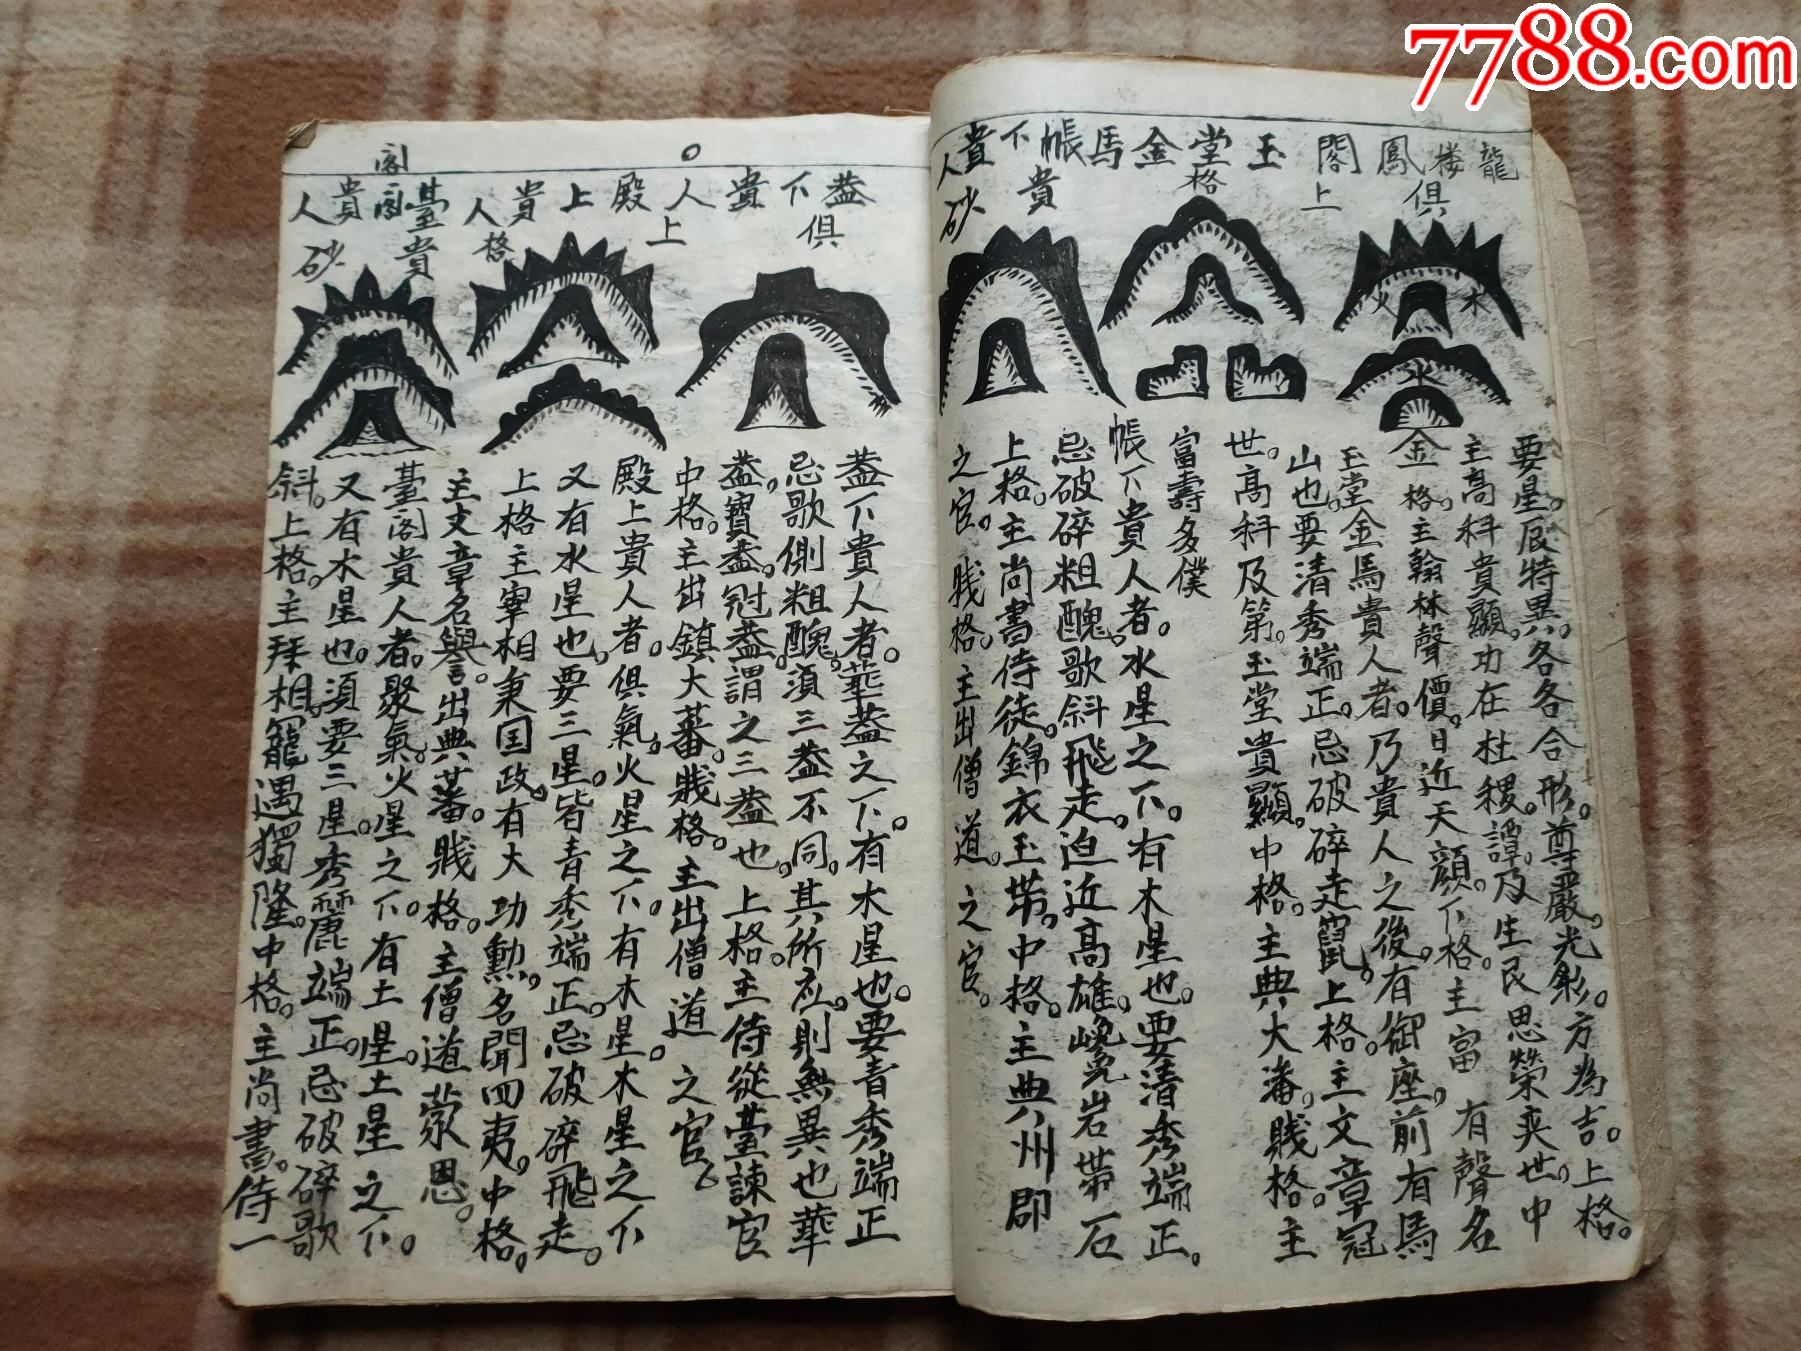 7788.com
龍楼鳳閣
俱上
玉堂金馬
格
帳下貴人
貴砂
火
木
水
金
要星辰特異。各各合形。尊嚴光彩。方為吉。上格。
主高科貴顯。功在杜稷。譚及生民思榮奕世。中
格。主翰林聲價。日近天顔。下格。主富有聲名
玉堂金馬貴人者。乃貴人之後。有御座。前有馬
山也。要清秀端正。忌破碎走竄。上格。主文章冠
世。高科及第。玉堂貴顯。中格。主典大潘。賎格。主
富壽多僕
帳下貴人者。水星之下。有木星也。要清秀端正。
忌破碎粗醜。歌斜飛走。迫近高雄。巉岩帶石
上格。主尚書侍徒。錦衣玉带。中格。主典州郡
之官。賎格。主出僧道。之官。
盖下貴人
俱上
殿上貴人
格
臺閣貴人
貴砂
盖下貴人者。華盖之下。有木星也。要青秀端正
忌歌側粗醜。湏三盖不同。其所应。則無異也華
盖。寳盖。冠盖。謂之三盖也。上格。主侍從臺諫官
中格。主出鎮大蕃。賎格。主出僧道之官。
殿上貴人者。俱氣。火星之下。有木星。木星之下
又有水星也。要三星。皆青秀端正。忌破碎飛走。
上格主宰相秉国政。有大功勲。名聞四夷。中格。
主文章名譽。出典蕃。賎格。主僧道蒙恩。
臺閣貴人者。聚氣。火星之下。有土星。土星之下。
又有木星也。須要三星。秀麗端正。忌破碎歌
斜。上格。主拜相。寵遇獨隆。中格。主尚書。侍一